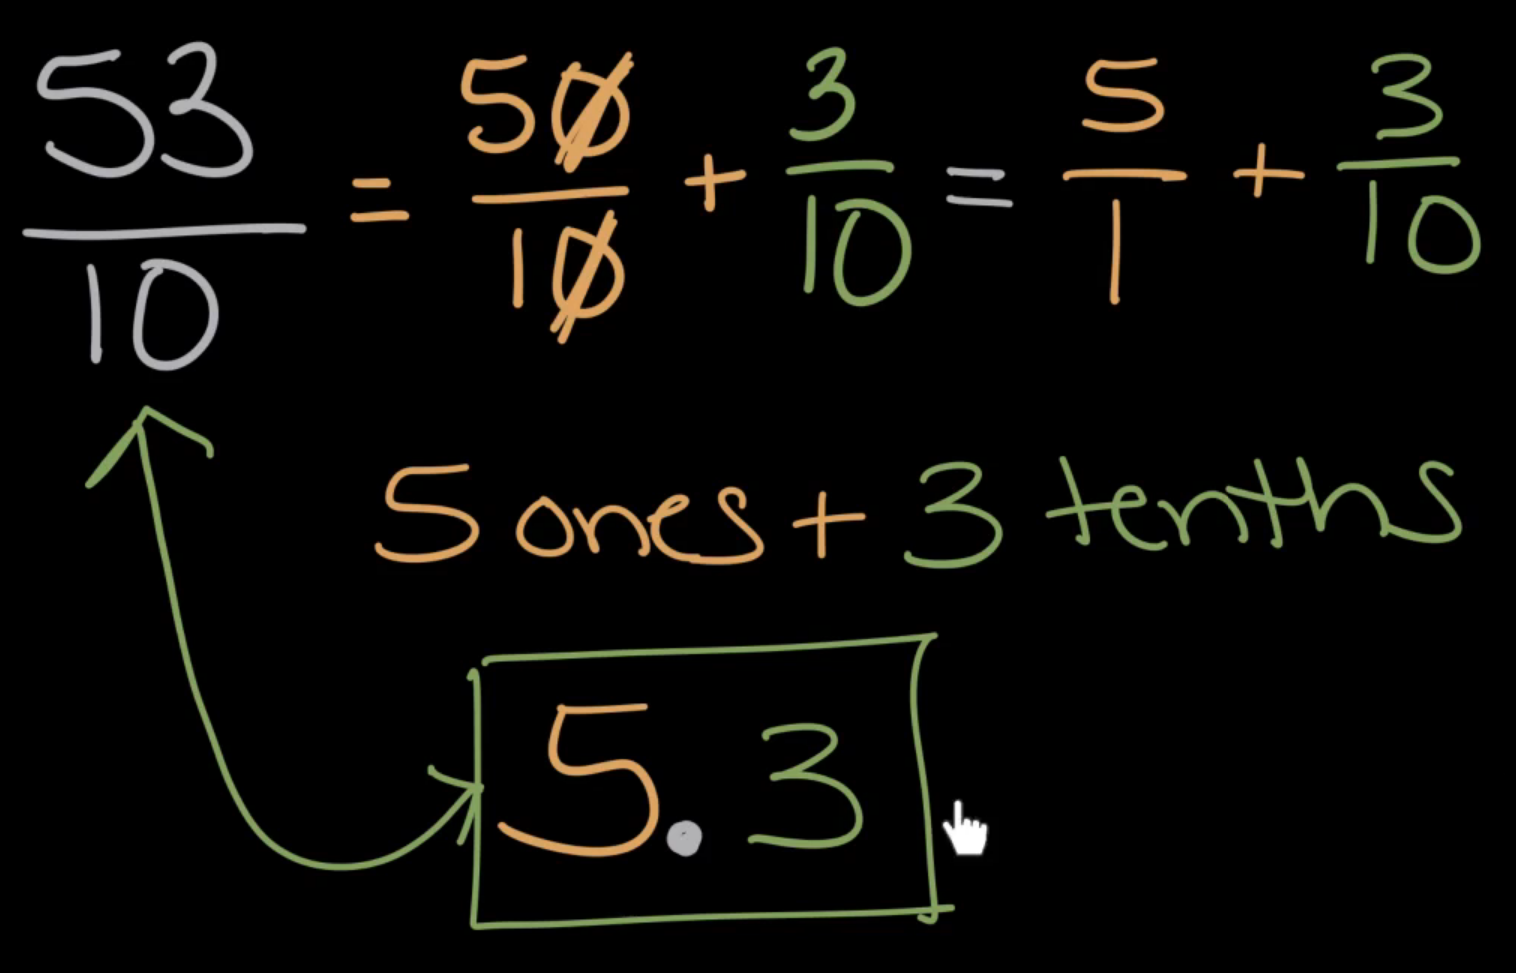 53/10 = 50/10 + 3/10 = 5/1 + 3/10
5 ones + 3 tenths
5.3